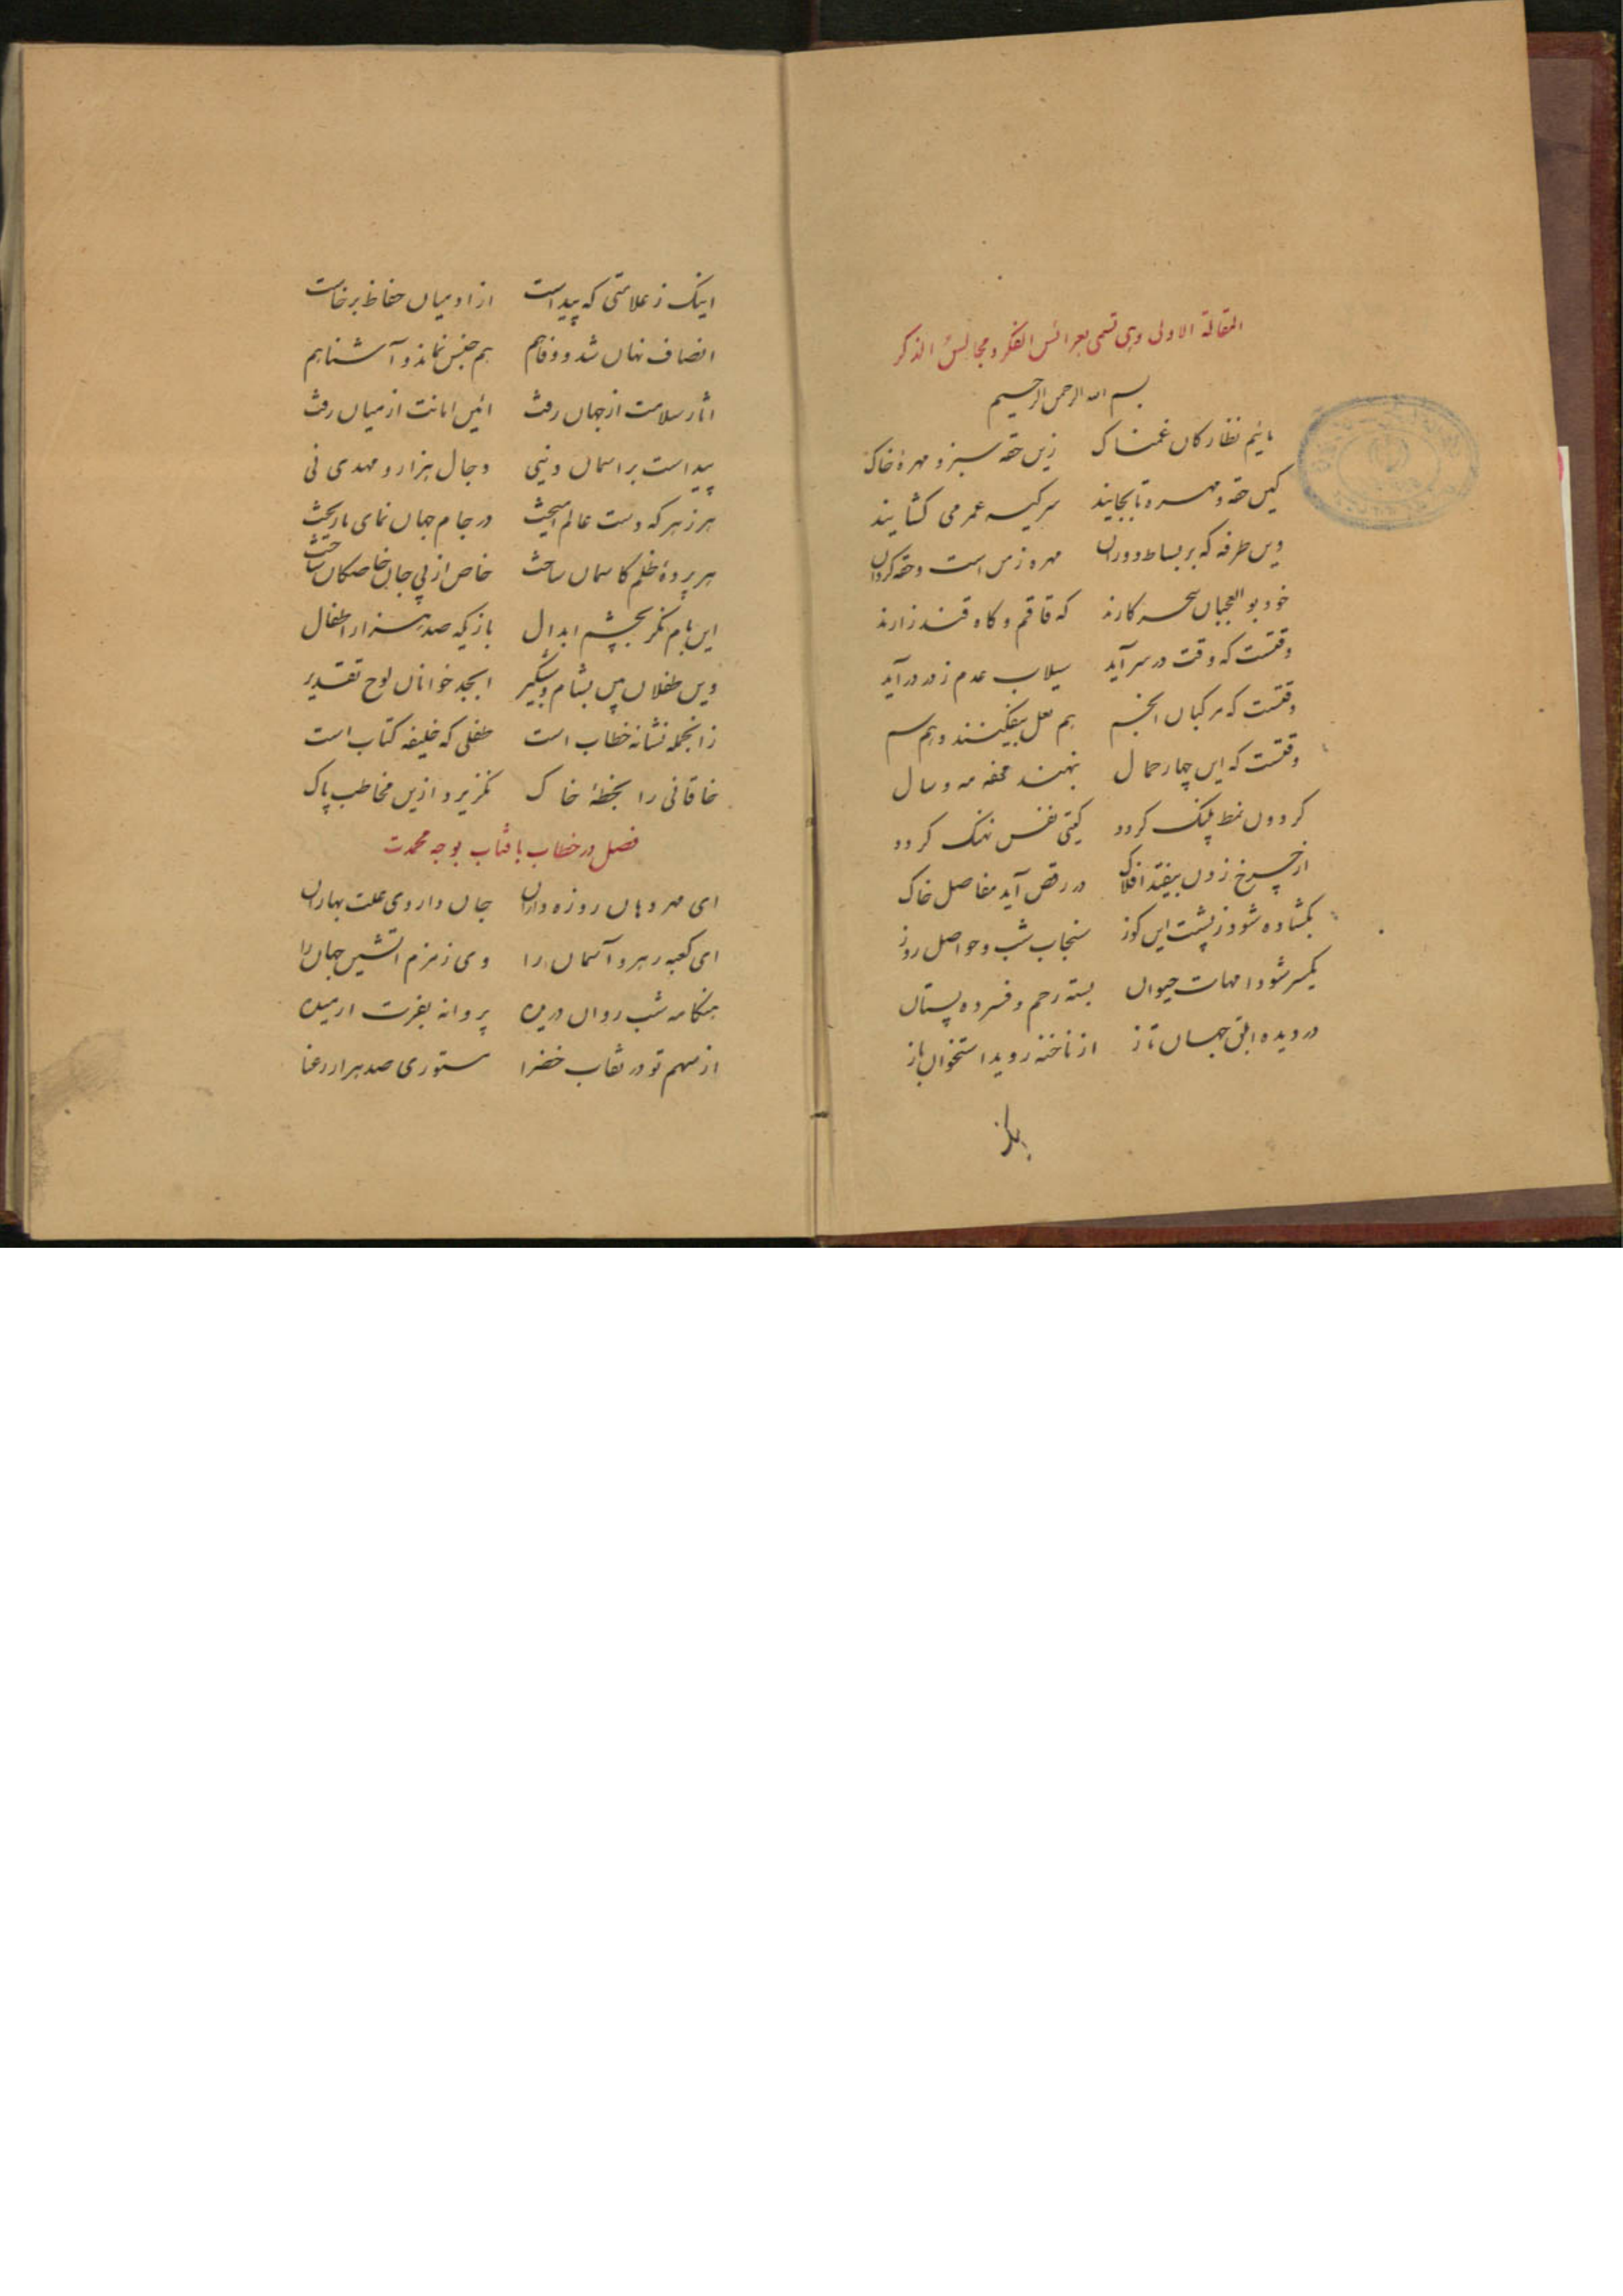 المقالة الاولی وهی تسمی بعرائس الفکر و مجالس الذکر
بسم الله الرحمن الرحیم
مائیم نظارکان غمناک زین حقه سبز و مهرۀ خاک
کین حقه و مهره تا بجایند سر کیسه عمر می کشایند
وین طرفه که بر بساط دوران مهره زمن است و حقه کردان
خود بوالعجبان سحر کارند که قاقم و کاه قندز ارند
وقتست که وقت در سر آید سیلاب عدم ز در در آید
وقتست که مرکبان انجم هم نعل بیفکنند و هم سم
وقتست که این چهار حمال بنهند محفه مه و سال
کردون نمط پلنک کردد کیتی نفس نهنک کردد
از چرخ زدن بیفتد افلاک در رقص آید مفاصل خاک
بکشاده شود ز پشت این کوز سنجاب شب و حواصل روز
یکسر شود امهات حیوان بسته رحم و فسرده پستان
در دیده ابلق جهان تاز از ناخنه روید استخوان باز
اینک ز علامتی که پیداست از ادمیان حفاظ برخاست
انصاف نهان شد و وفا هم هم جنس نماند و آشنا هم
اثار سلامت از جهان رفت ائین امانت از میان رفت
پیداست بر اسمان و نیی دجال هزار و مهدی نی
هر زهر که دست عالم امیخت در جام جهان نمای ما ریخت
هر پردۀ ظلم کاسمان ساخت خاص از پی جان خاصکان ساخت
این بام نکر بچشم ابدال بازیکه صد هزار اطفال
وین طفلان بین بشام و شبکیر ابجد خوانان لوح تقدیر
زانجمله نشانه خطاب است طفلی که خلیفه کتاب است
خاقانی را بخطۀ خاک نکزیرد ازین مخاطب پاک
فصل در خطاب بافتاب بوجه محمدت
ای مهر دهان روزه داران جان داروی علت بهاران
ای کعبه رهرو آسمان را وی زمزم اتشین جهان را
هنکامه شب روان دریده پروانه بغرت ارمیده
از سهم تو در نقاب خضرا مستوری صد هزار رعنا